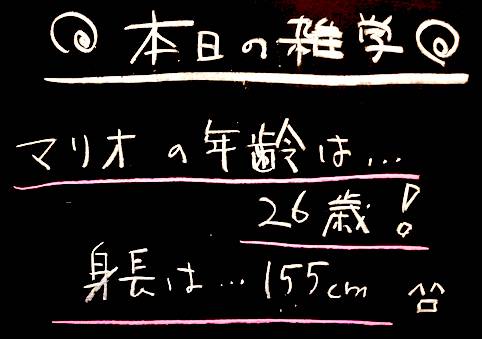 本日の雑学
マリオの年齢は…
26歳!
身長は…155cm